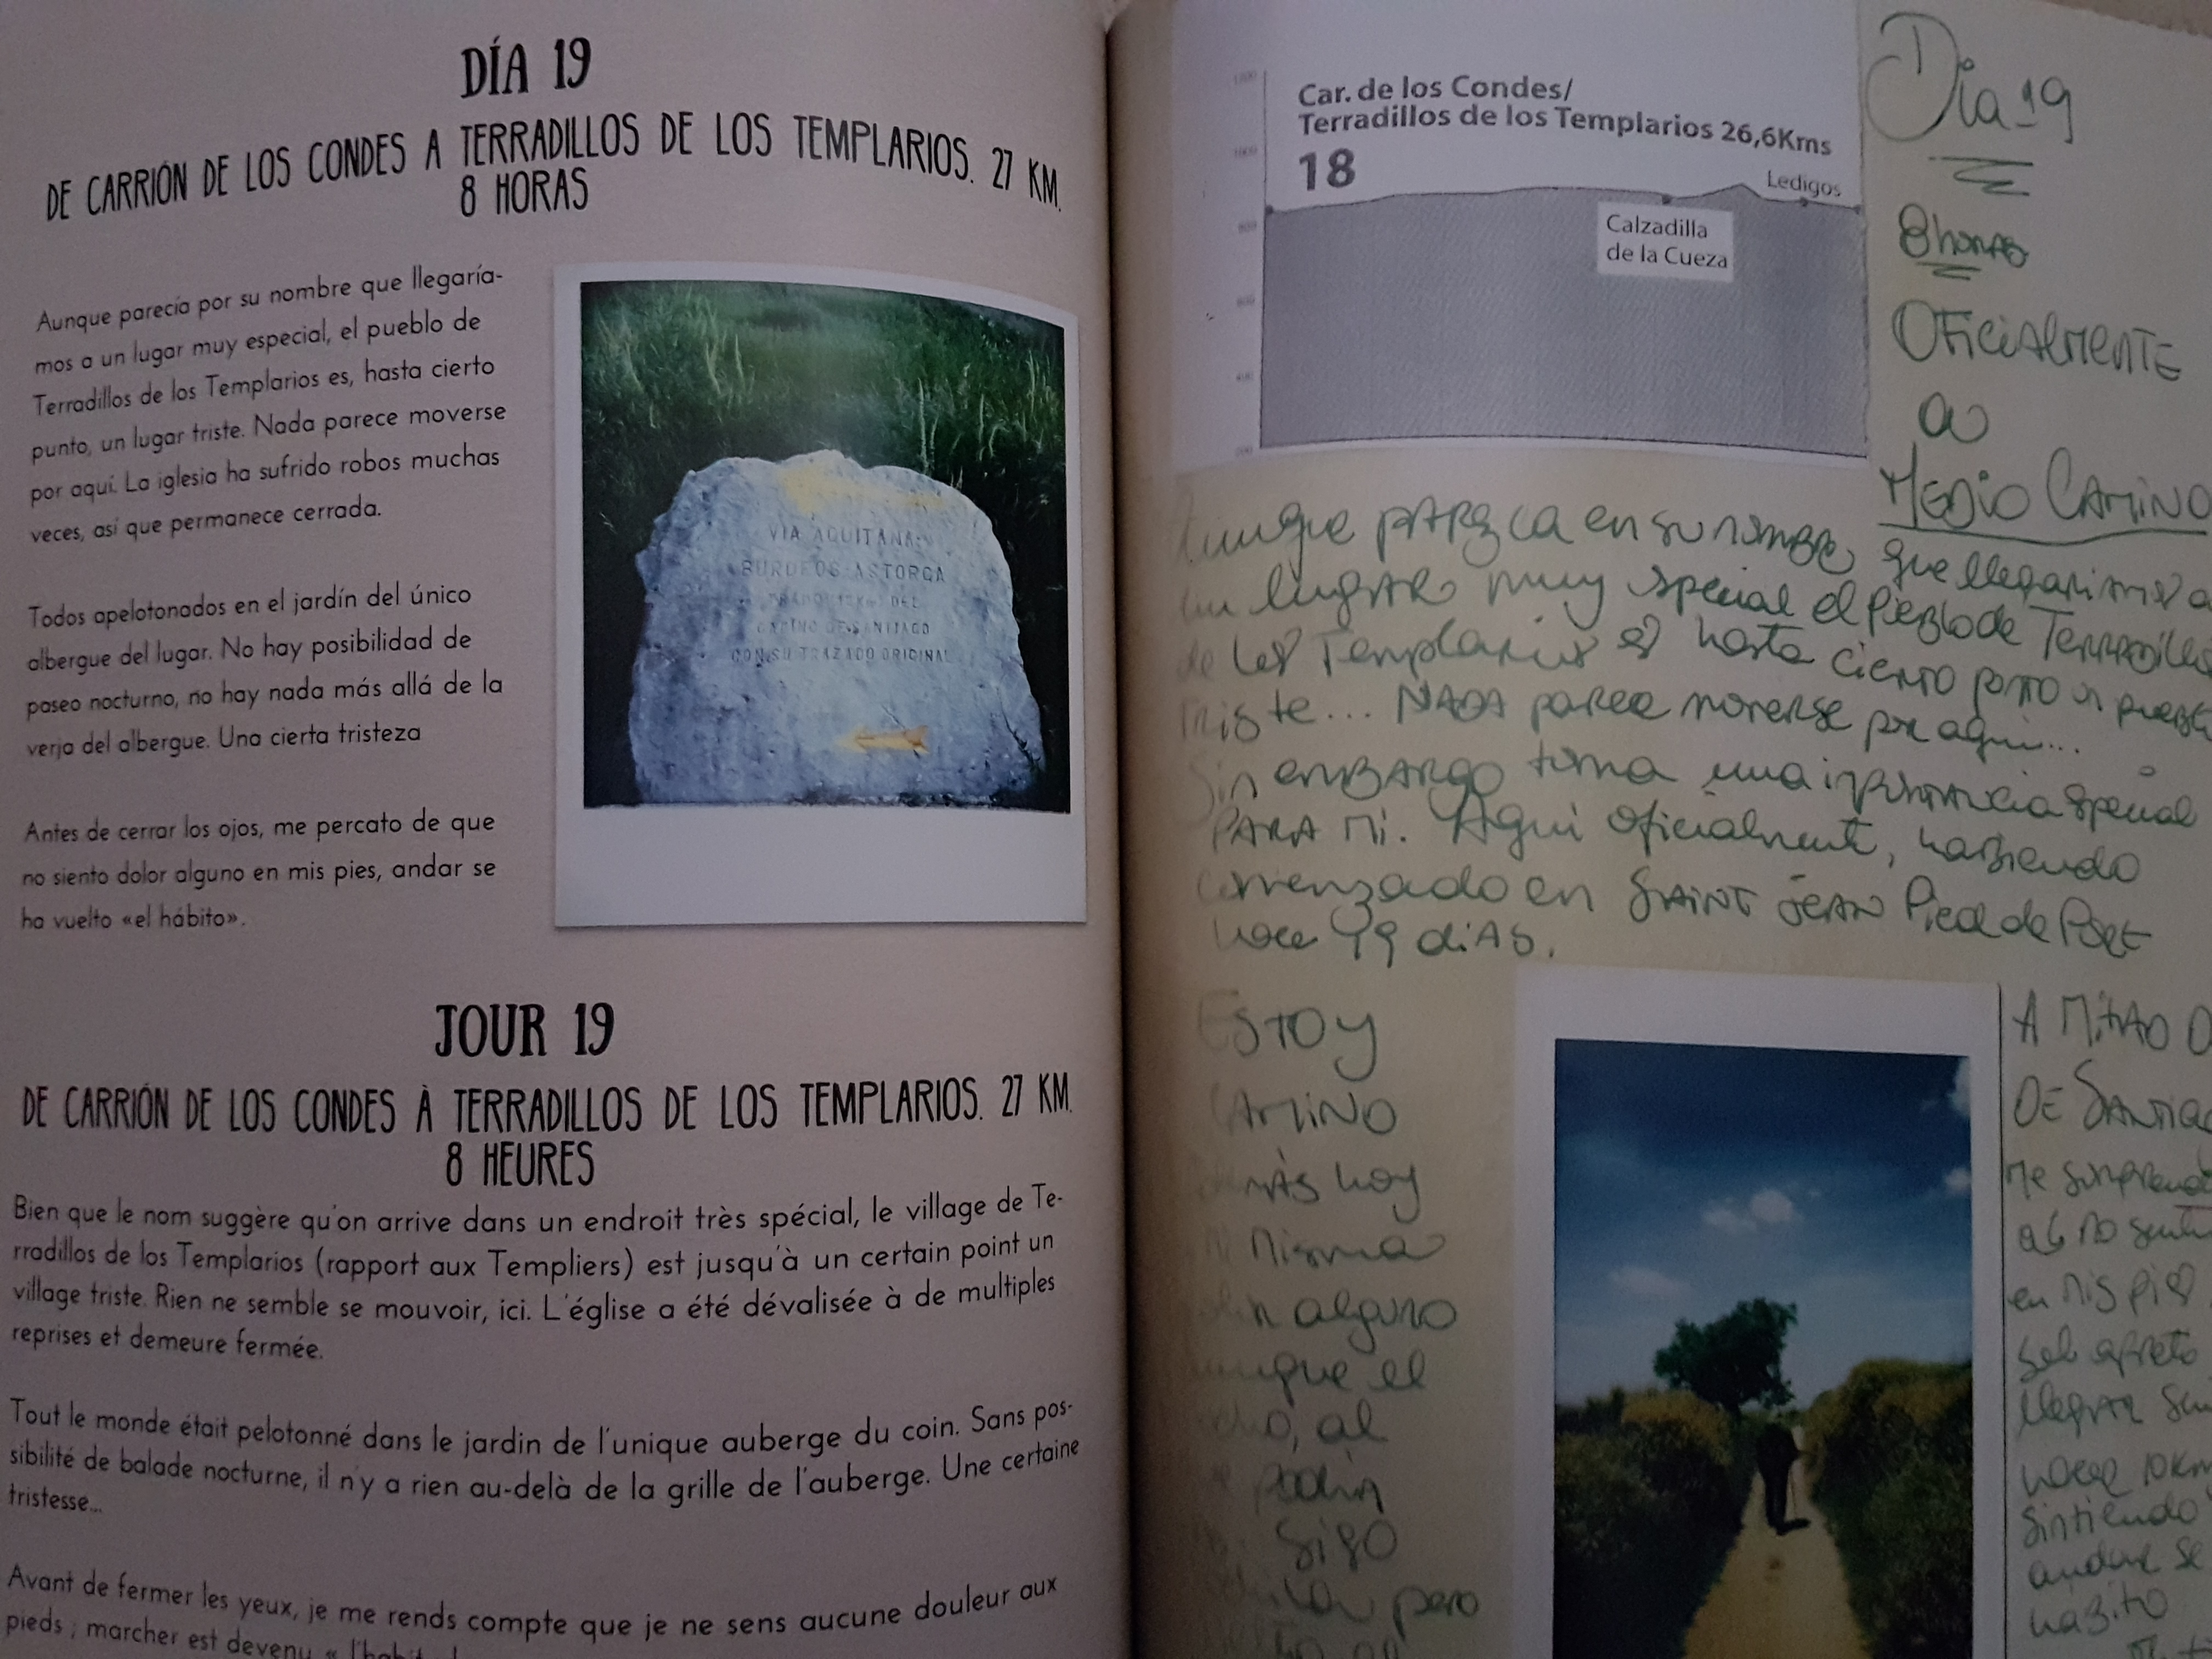 DÍA 19
DE CARRIÓN DE LOS CONDES A TERRADILLOS DE LOS TEMPLARIOS. 27 KM.
8 HORAS
Aunque parecía por su nombre que llegaría-
mos a un lugar muy especial, el pueblo de
Terradillos de los Templarios es, hasta cierto
punto, un lugar triste. Nada parece moverse
por aquí. La iglesia ha sufrido robos muchas
veces, así que permanece cerrada.
Todos apelotonados en el jardín del único
albergue del lugar. No hay posibilidad de
paseo nocturno, no hay nada más allá de la
verja del albergue. Una cierta tristeza
Antes de cerrar los ojos, me percato de que
no siento dolor alguno en mis pies, andar se
ha vuelto «el hábito».
VIA AQUITANA
BURDEOS-ASTORGA
DEL
CAMINO DE SANTIAGO
CON SU TRAZADO ORIGINAL
JOUR 19
DE CARRIÓN DE LOS CONDES À TERRADILLOS DE LOS TEMPLARIOS. 27 KM.
8 HEURES
Bien que le nom suggère qu'on arrive dans un endroit très spécial, le village de Te-
rradillos de los Templarios (rapport aux Templiers) est jusqu'à un certain point un
village triste. Rien ne semble se mouvoir, ici. L'église a été dévalisée à de multiples
reprises et demeure fermée.
Tout le monde était pelotonné dans le jardin de l'unique auberge du coin. Sans pos-
sibilité de balade nocturne, il n'y a rien au-delà de la grille de l'auberge. Une certaine
tristesse...
Avant de fermer les yeux, je me rends compte que je ne sens aucune douleur aux
pieds ; marcher est devenu «
Car. de los Condes/
Terradillos de los Templarios 26,6Kms
18
Ledigos
Calzadilla
de la Cueza
Día 19
8 horas
OFICIALMENTE
a
MEDIO CAMINO
Aunque parezca en su nombre que llegariamos a
un lugar muy special el pueblo de
de los Templarios es hasta cierto punto un
triste... NADA parece moverse por aqui...
Sin embargo toma una importancia special
PARA MI. Aqui oficialmente, habiendo
comenzado en SAINT JEAN Pied de Port
hace 19 dias.
ESTOY
CAMINO
más hoy
misma
alguno
el
al
podia
sigo
pero
A MITAD D
DE SANTIAG
me
no
en mis pies
llegar
hace 10 Km
sintiendo
andar se
habito